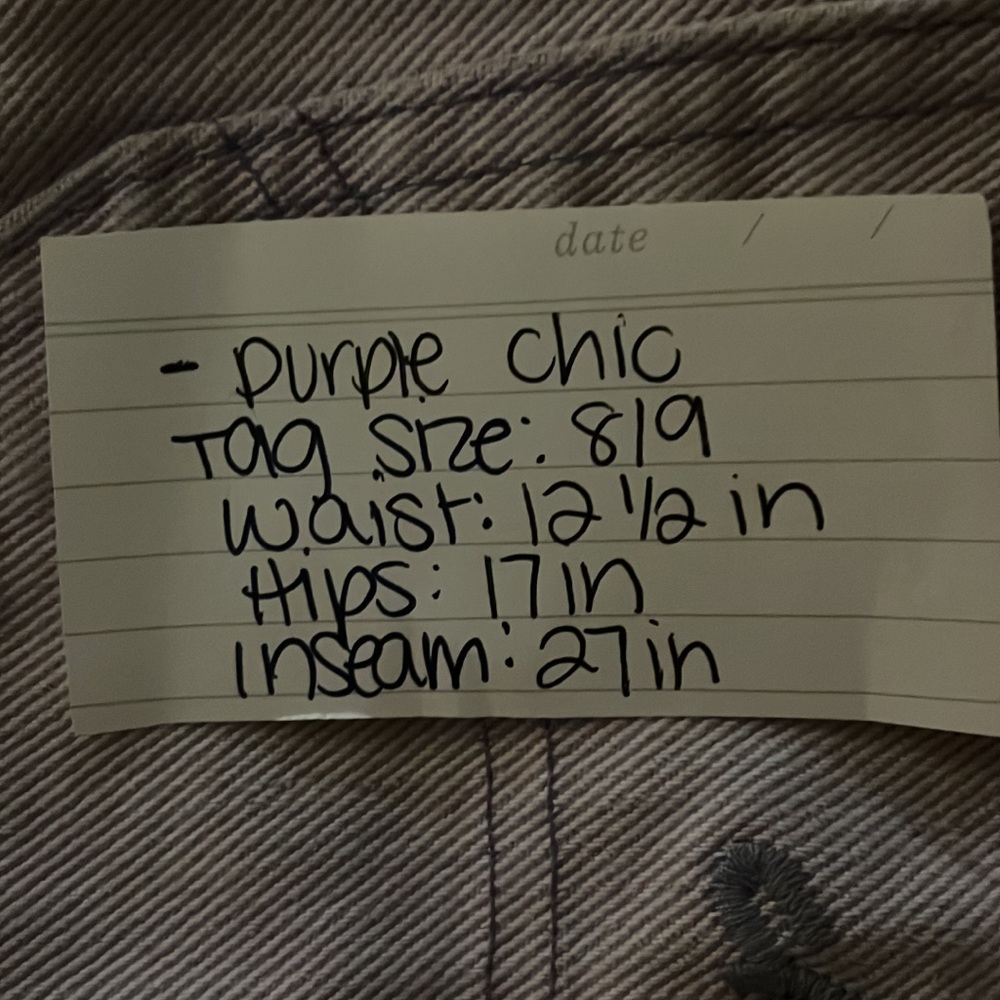 date / /
- purple chic
Tag size: 8/9
waist: 12 1/2 in
Hips: 17 in
inseam: 27 in